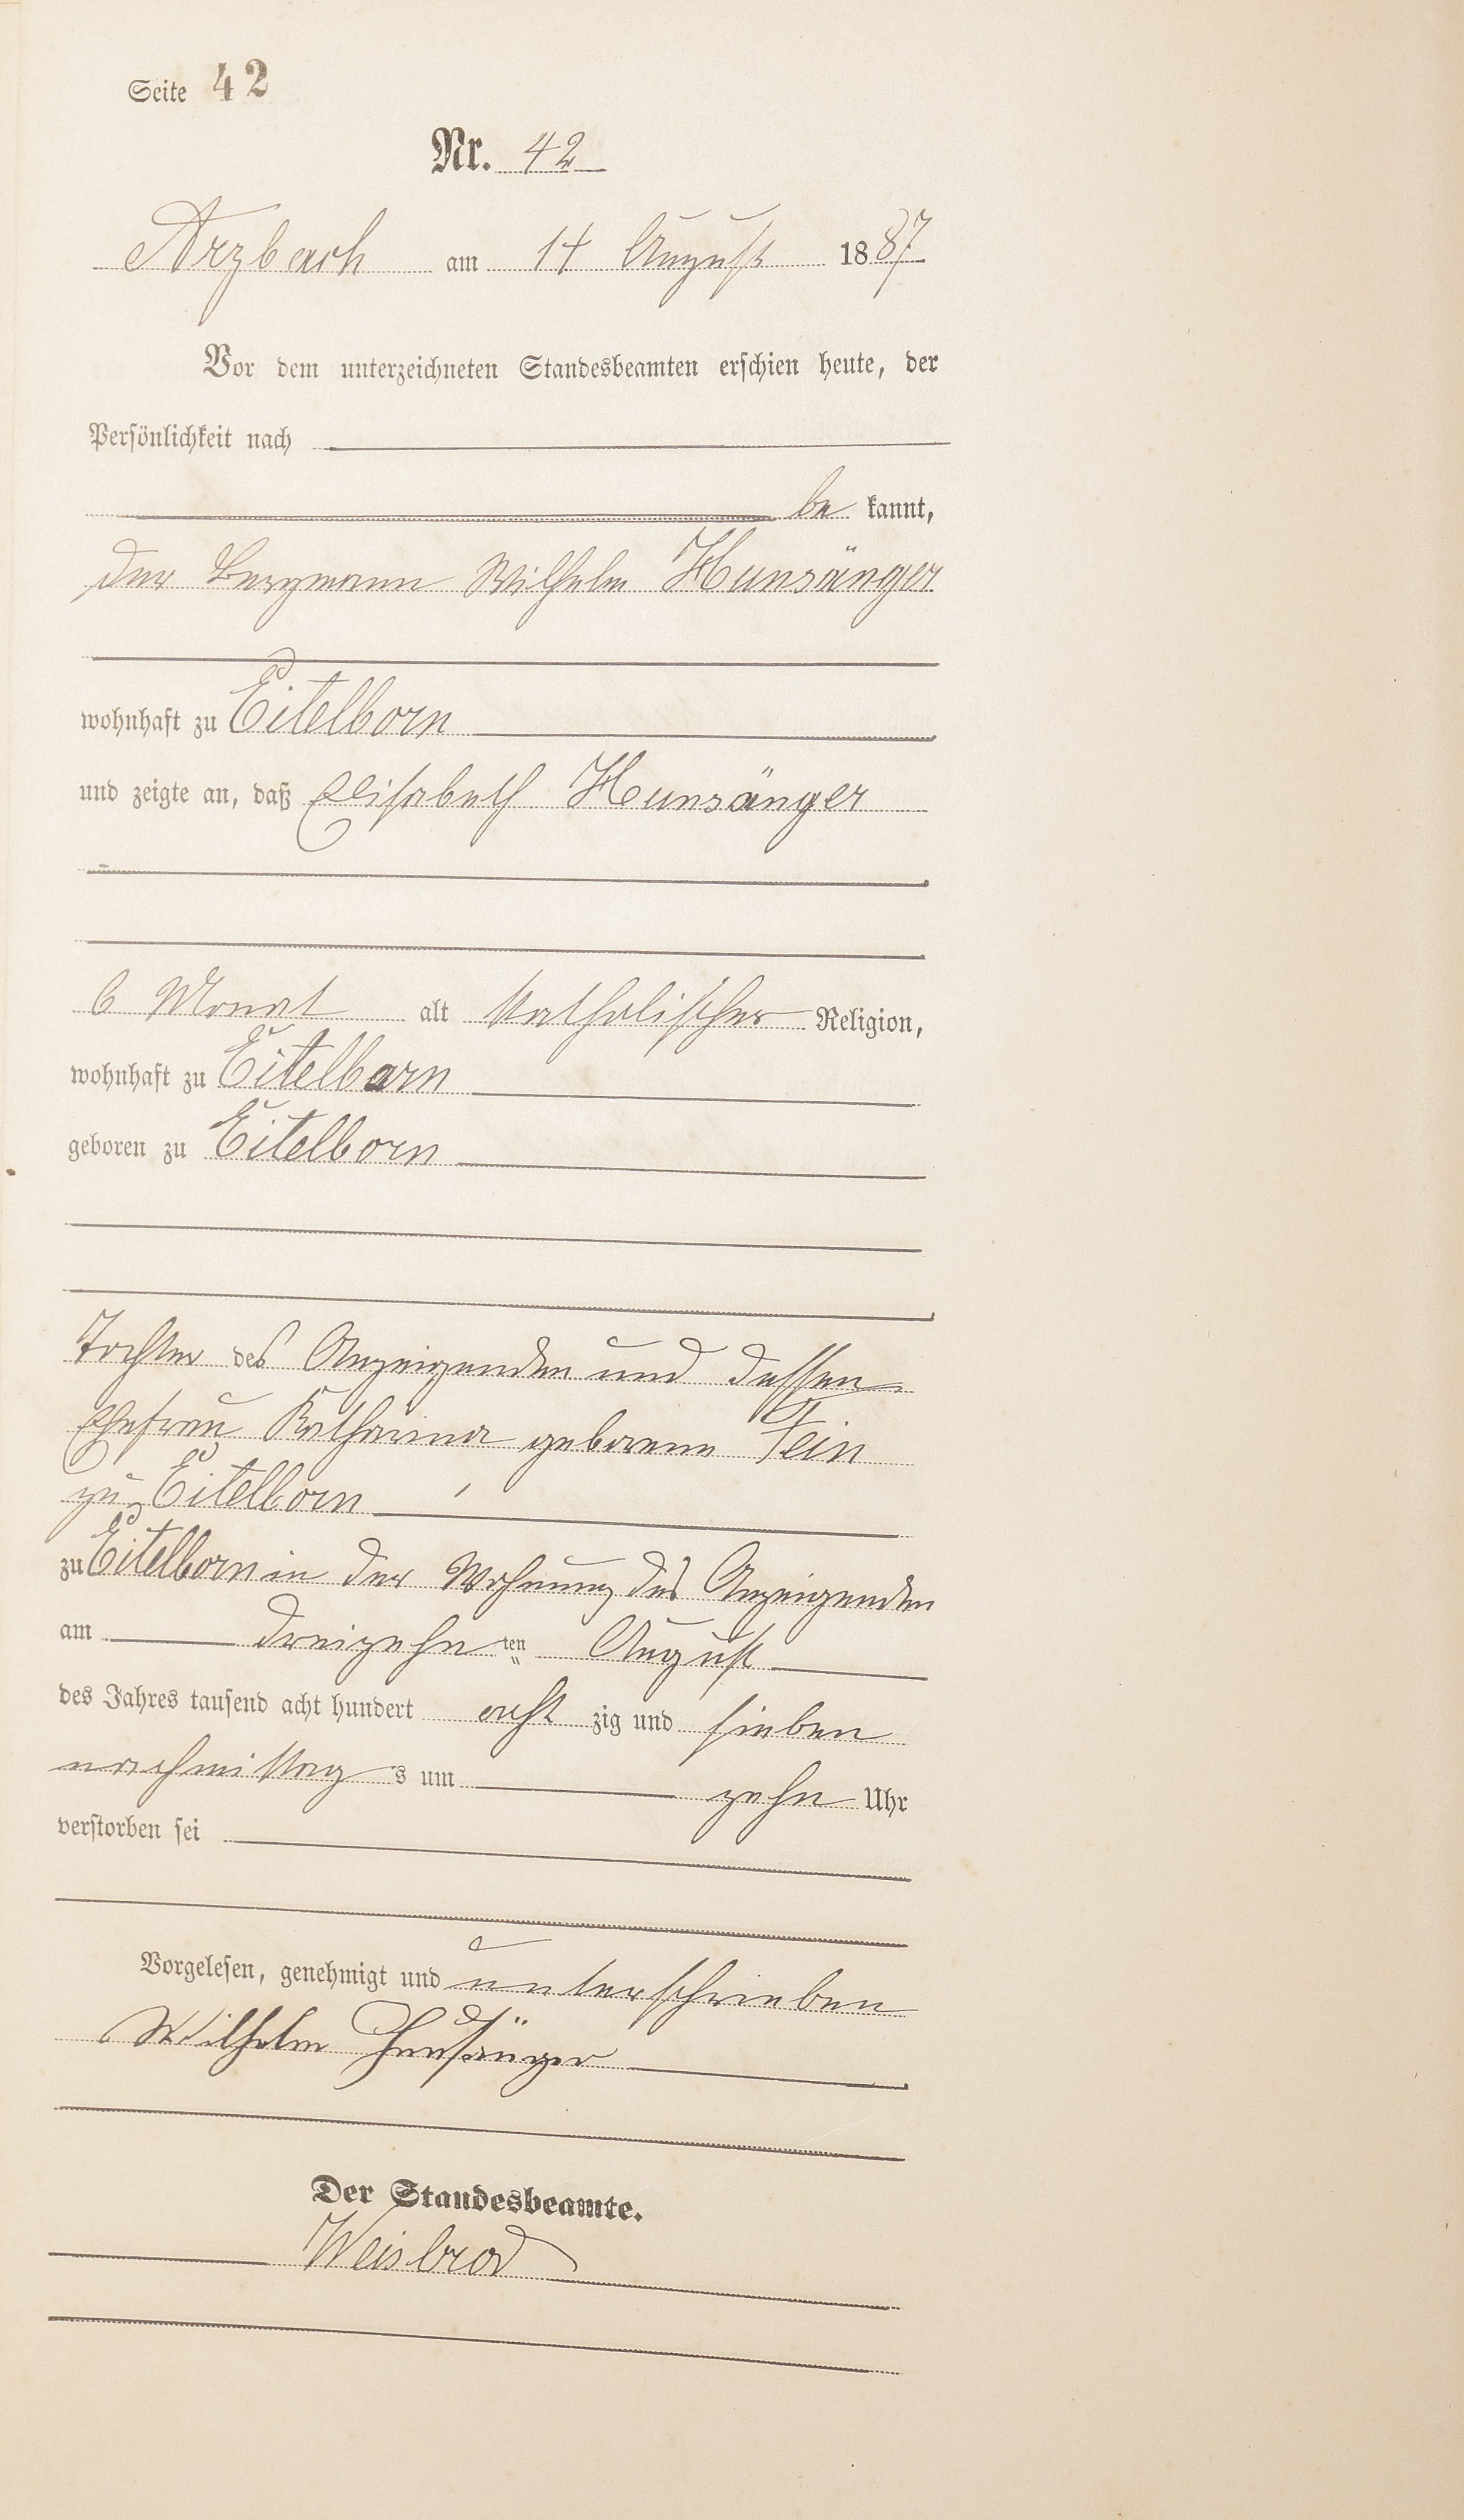 Seite 42
Nr. 42
Arzbach am 14 August 1887
Vor dem unterzeichneten Standesbeamten erschien heute, der
Persönlichkeit nach
be kannt,
der Bergmann Wilhelm Hunsänger
wohnhaft zu Eitelborn
und zeigte an, daß Elisabeth Hunsänger
6 Monat alt katholischer Religion,
wohnhaft zu Eitelborn
geboren zu Eitelborn
Tochter des Anzeigenden und dessen
Ehefrau Katharina geborene Fein
zu Eitelborn
zu Eitelborn in der Wohnung des Anzeigenden
am dreizehn ten August
des Jahres tausend acht hundert acht zig und sieben
nachmittag s um zehn Uhr
verstorben sei
Vorgelesen, genehmigt und unterschrieben
Wilhelm Hunsänger
Der Standesbeamte.
Weisbrod